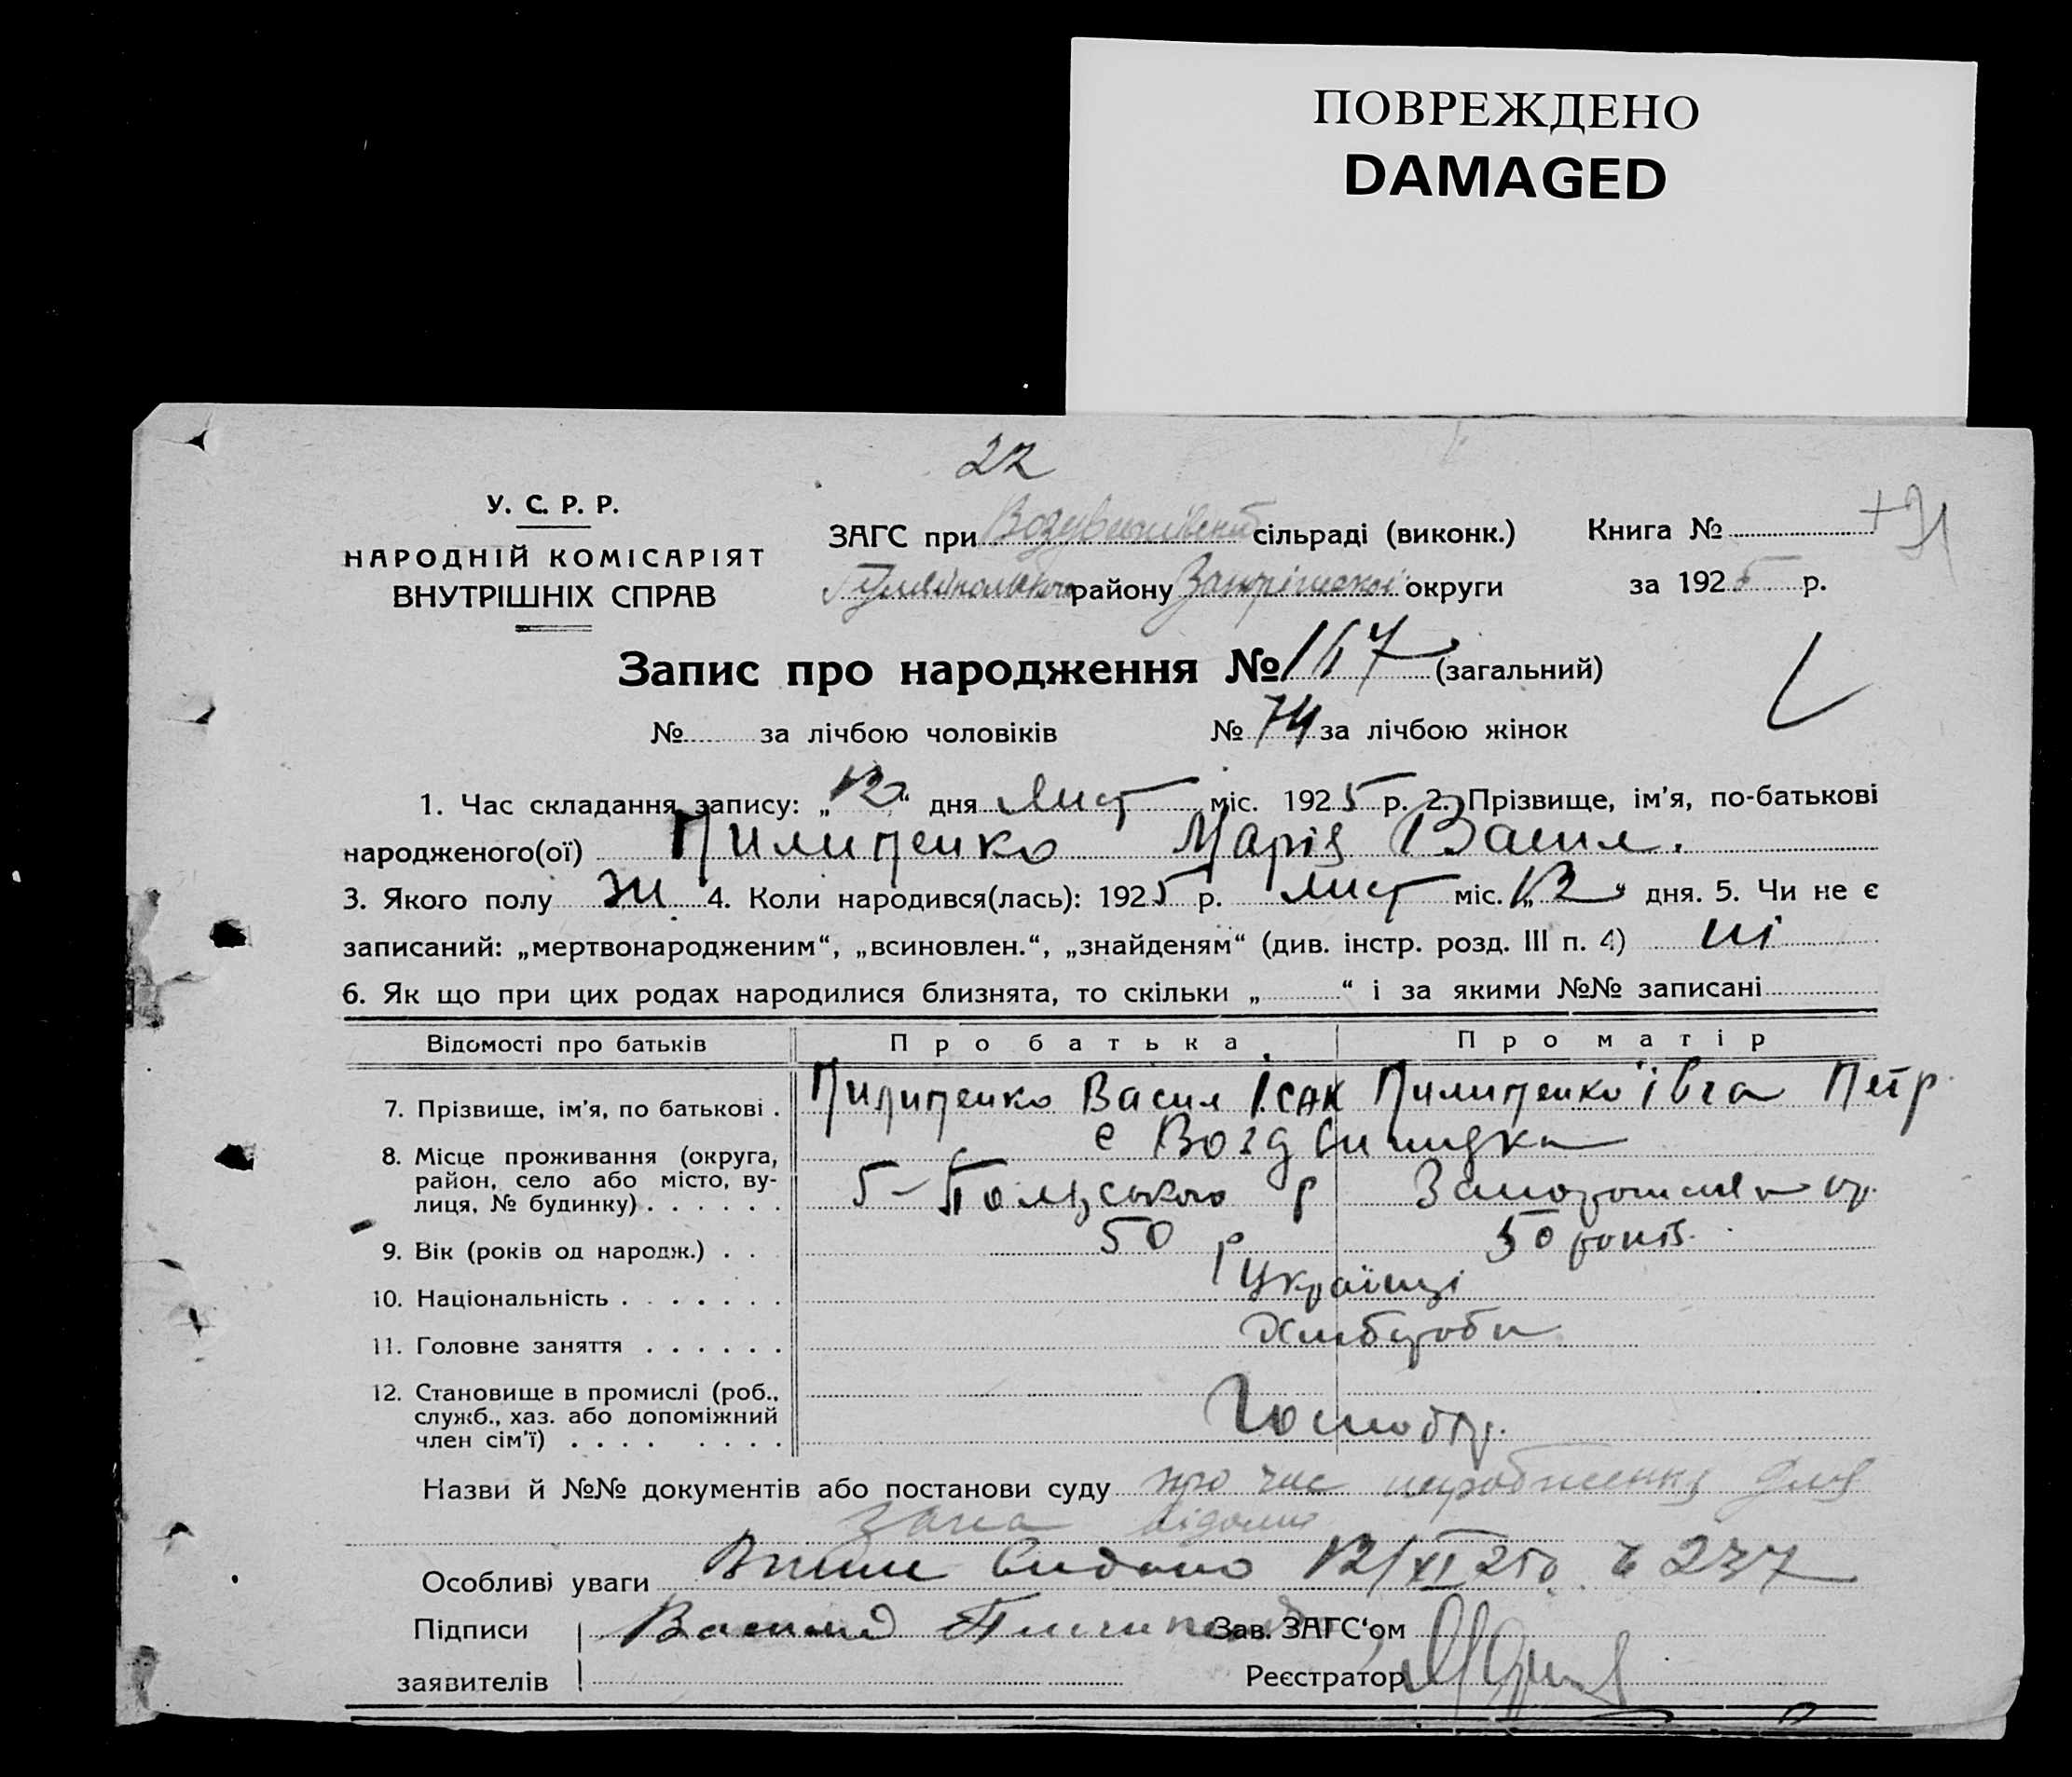 ПОВРЕЖДЕНО
DAMAGED
22
У. С. Р. Р.
НАРОДНІЙ КОМІСАРІЯТ
ВНУТРІШНІХ СПРАВ
ЗАГС при сільраді (виконк.) Книга №
району округи за 1925 р.
Запис про народження № 167 (загальний)
№ за лічбою чоловіків № 74 за лічбою жінок
1. Час складання запису: „12“ дня лист міс. 1925 р. 2. Прізвище, ім’я, по-батькові
народженого(ої) Пилипенко Марія Васил.
3. Якого полу жі 4. Коли народився(лась): 1925 р. лист міс. „12“ дня. 5. Чи не є
записаний: „мертвонародженим“, „всиновлен.“, „знайденям“ (див. інстр. розд. III п. 4) ні
6. Як що при цих родах народилися близнята, то скільки „ “ і за якими №№ записані
Відомості про батьків Про батька Про матір
7. Прізвище, ім’я, по батькові . Пилипенко Васил Ісак Пилипенко Івга Петр
8. Місце проживання (округа, район, село або місто, вулиця, № будинку) . . . . . . с Воздвиждка
Г-Польського р ок.
9. Вік (років од народж.) . . 50 р 50 років
10. Національність . . . . . . . Українці
11. Головне заняття . . . . . . Хлібороби
12. Становище в промислі (роб., служб., хаз. або допоміжний член сім’ї) . . . . . . . . Господар.
Назви й №№ документів або постанови суду про час народження для
загса відомо
Особливі уваги Випис видано 12/XI 25 р. № 237
Підписи Василь Пилипенко Зав. ЗАГС‘ом
заявителів Реєстратор